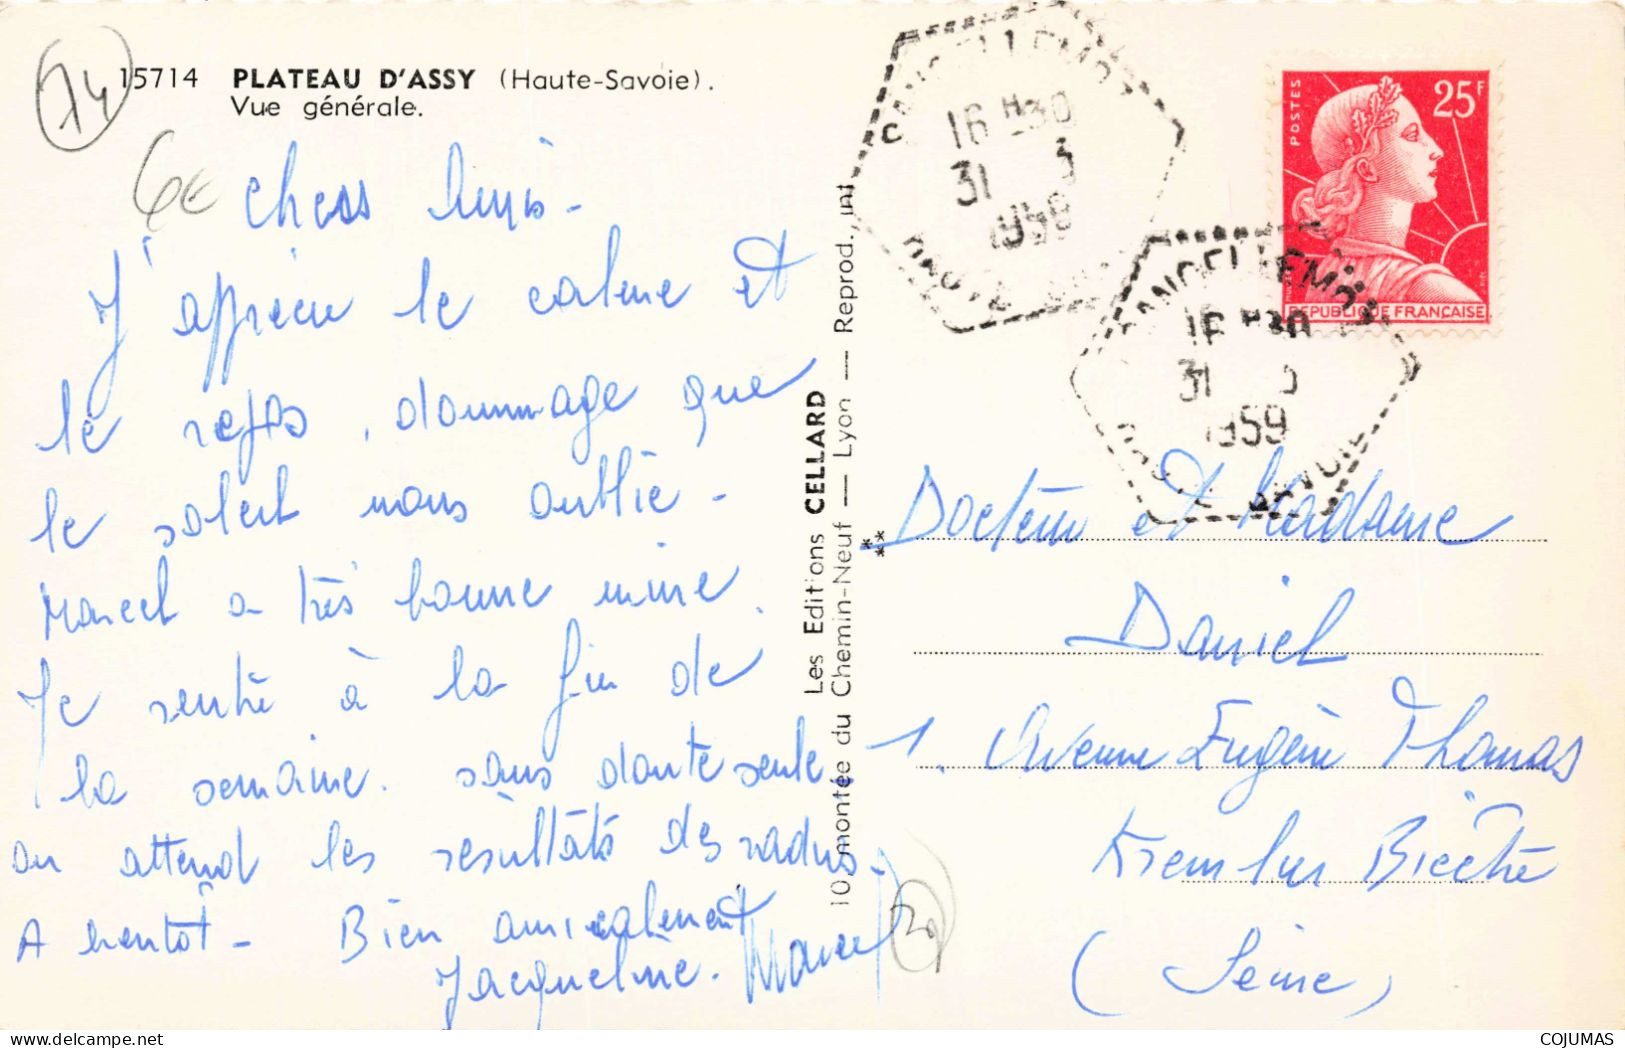 15714 PLATEAU D'ASSY (Haute-Savoie).
Vue générale.
74
6€
chers Amis -
J'apprécie le calme et
le repos, dommage que
le soleil nous oublie -
Marcel a très bonne mine.
Je rentre à la fin de
la semaine. sans doute seule.
on attend les résultats des radios -
A bientôt - Bien amicalement
Jacqueline. Marcel
20
Les Editions CELLARD
10, montée du Chemin-Neuf — Lyon — Reprod. int
SANCELLEMOZ
16 H30
31 3
1959
HAUTE SAVOIE
SANCELLEMOZ
16 H30
31 3
1959
HAUTE SAVOIE
POSTES
25F
REPUBLIQUE FRANÇAISE
Docteur et Madame
Daniel
1. Avenue Eugène Thomas
Kremlin Bicêtre
(Seine)
COJUMAS